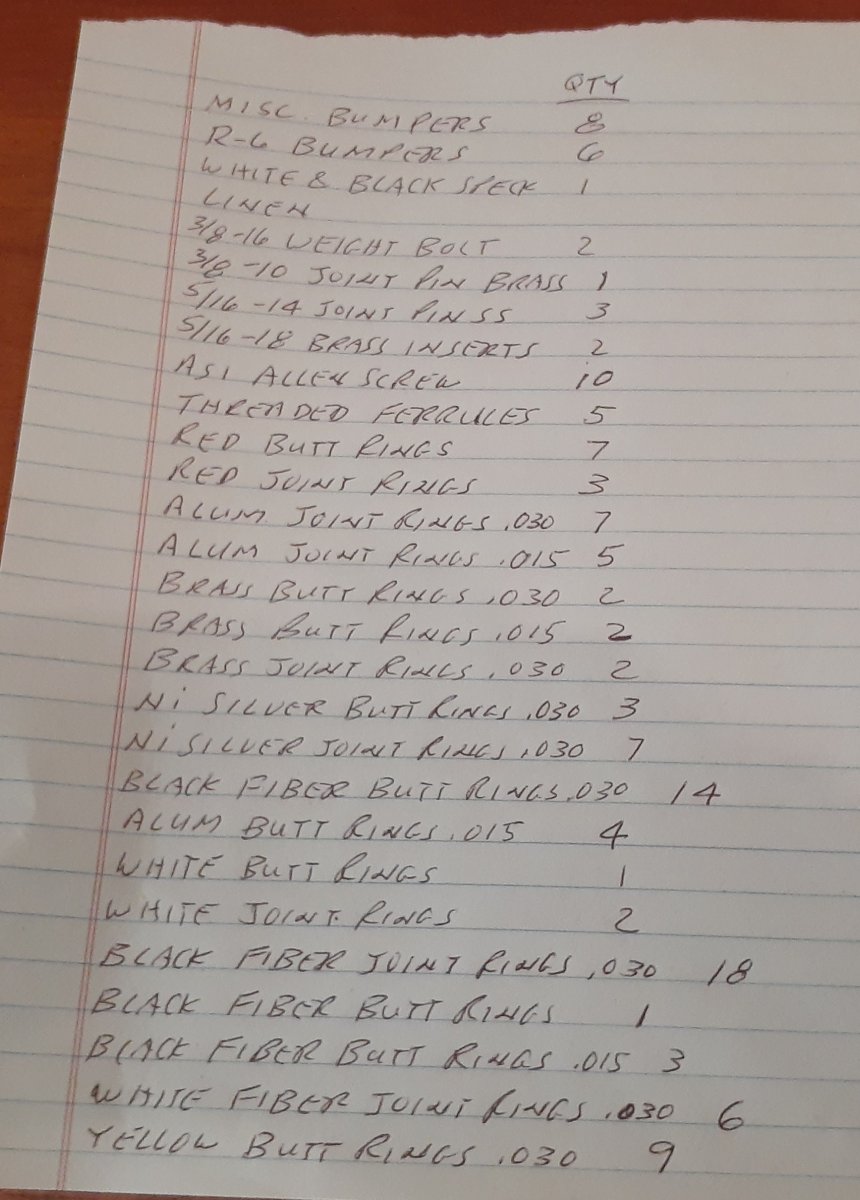 QTY
MISC. BUMPERS 8
R-6 BUMPERS 6
WHITE & BLACK SPECK 1
LINEN
3/8-16 WEIGHT BOLT 2
3/8-10 JOINT PIN BRASS 1
5/16-14 JOINT PIN SS 3
5/16-18 BRASS INSERTS 2
ASI ALLEN SCREW 10
THREADED FERRULES 5
RED BUTT RINGS 7
RED JOINT RINGS 3
ALUM JOINT RINGS .030 7
ALUM JOINT RINGS .015 5
BRASS BUTT RINGS .030 2
BRASS BUTT RINGS .015 2
BRASS JOINT RINGS .030 2
Ni SILVER BUTT RINGS .030 3
Ni SILVER JOINT RINGS .030 7
BLACK FIBER BUTT RINGS .030 14
ALUM BUTT RINGS .015 4
WHITE BUTT RINGS 1
WHITE JOINT RINGS 2
BLACK FIBER JOINT RINGS .030 18
BLACK FIBER BUTT RINGS 1
BLACK FIBER BUTT RINGS .015 3
WHITE FIBER JOINT RINGS .030 6
YELLOW BUTT RINGS .030 9